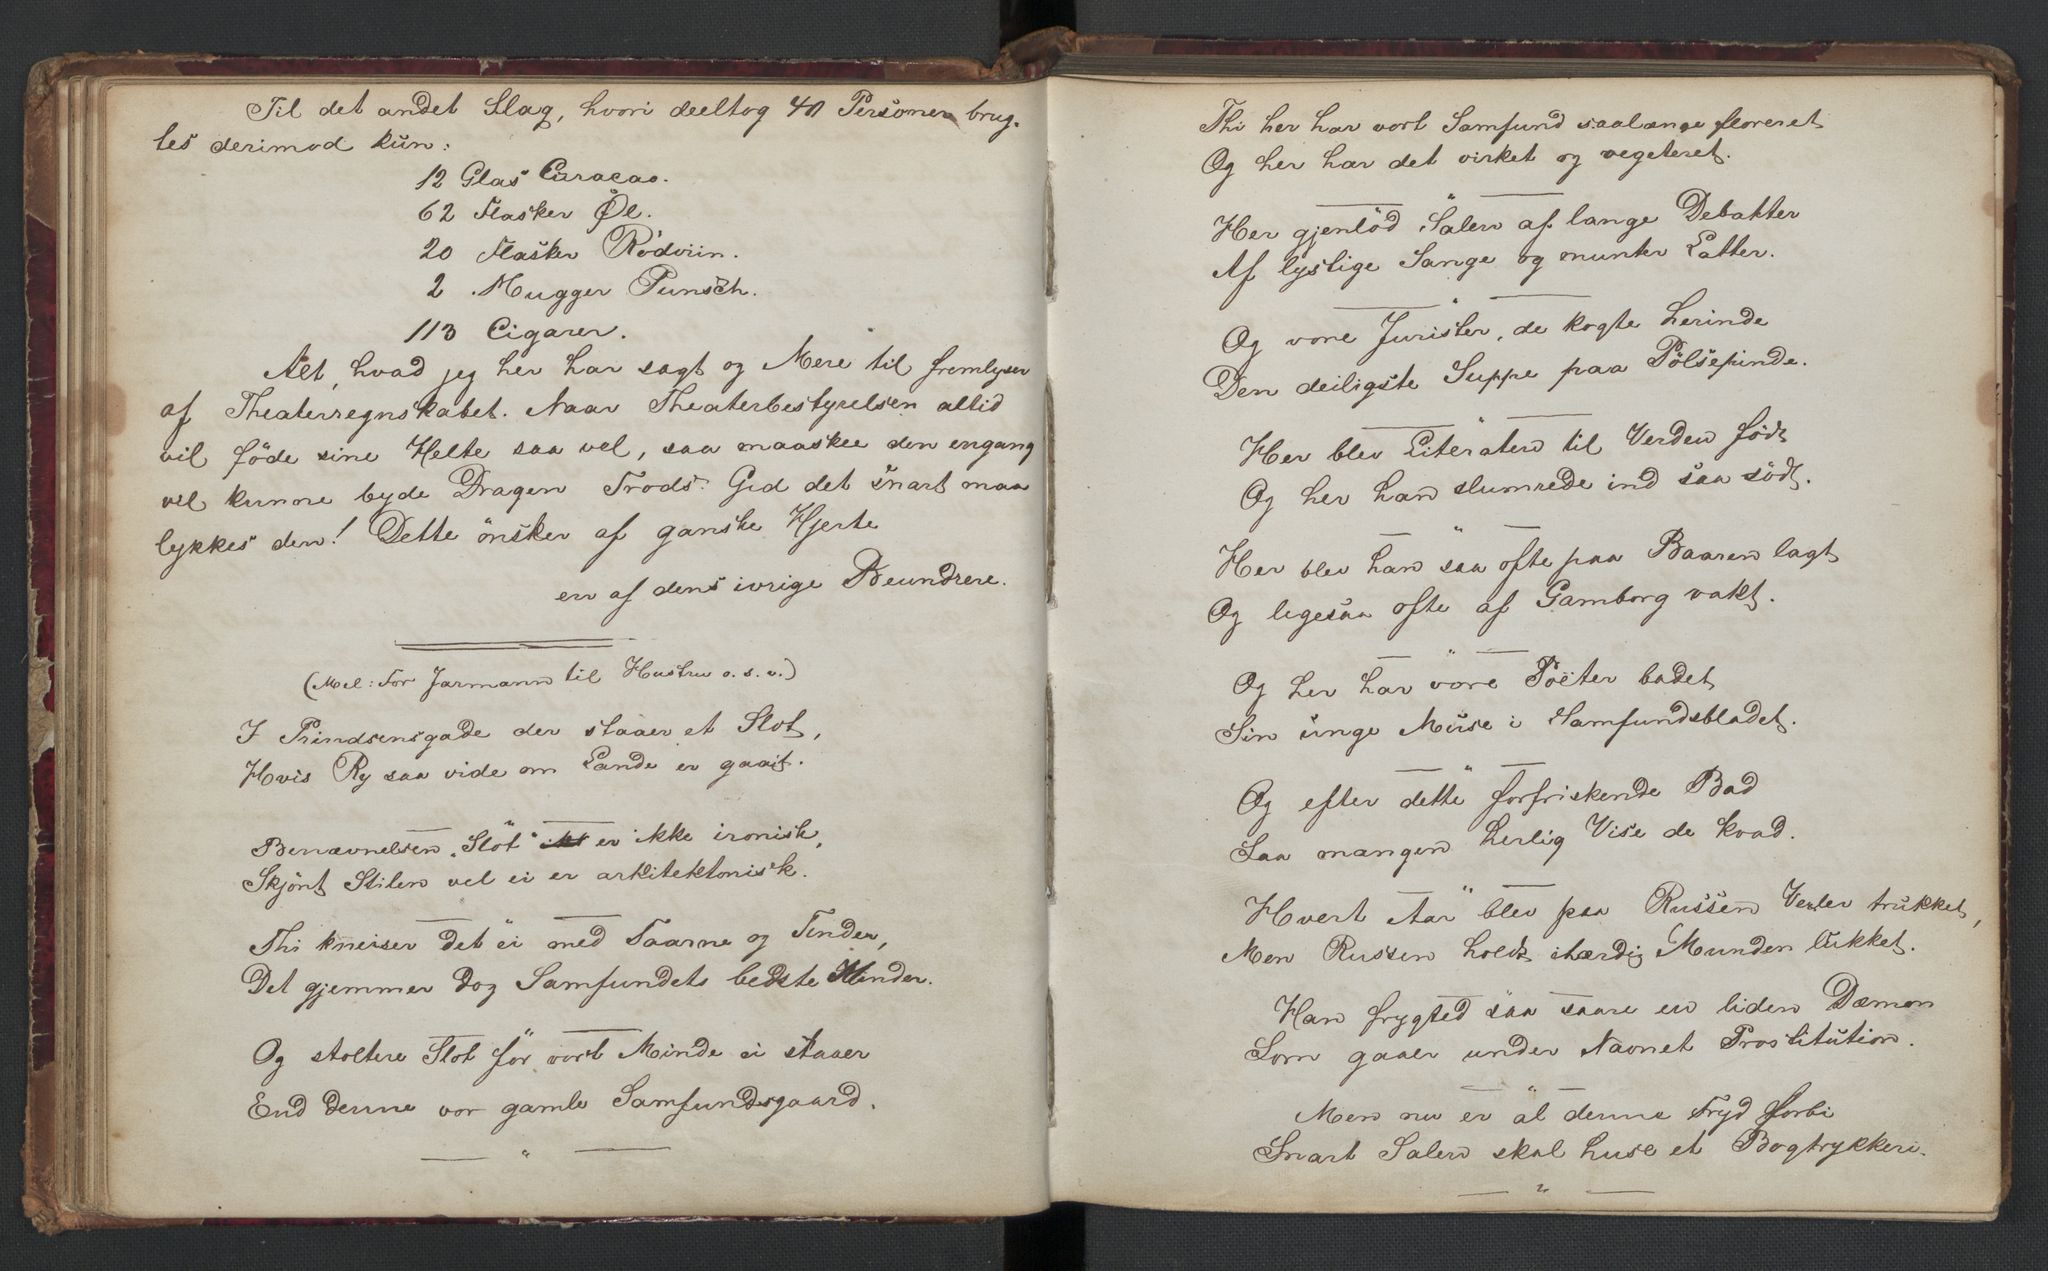 Til det andet Slag, hvori deeltog 40 Personer brug-
tes derimod kun:
12 Glas Curacao.
62 Flasker Øl.
20 Flasker Rödviin.
2 Mugger Punsch.
113 Cigarer.
Alt, hvad jeg her har sagt og Mere til fremlyser
af Theaterregnskabet. Naar Theaterbestyrelsen altid
vil föde sine Helte saa vel, saa maaskee den engang
vil kunne byde Dragen Trods. Gid det snart maa
lykkes den! Dette önsker af ganske Hjerte
en af dens ivrige Beundrere.
(Mel: For Jarmann til Hustru o. s. v.)
I Prindsensgade der staaer et Slot,
Hvis Ry saa vide om Lande er gaait.
Benævnelsen „Slot“ er ikke ironisk,
Skjönt Stilen vel ei er arkitektonisk.
Thi kneiser det ei med Taarne og Tinder,
Det gjemmer dog Samfundets bedste Minder.
Og stoltere Slot for vort Minde ei staaer
End denne vor gamle Samfundsgaard.
Thi her har vort Samfund saalænge floreret
Og her har det virket og vegeteret.
Her gjenlöd Salen af lange Debatter
Af lystige Sange og munter Latter.
Og vore Jurister, de kogte herinde
Den deiligste Suppe paa Pölsepinde.
Her blev Literaten til Verden födt
Og her han slumrede ind saa södt.
Her blev han saa ofte paa Baaren lagt
Og ligesaa ofte af Gamborg vakt.
Og her har vore Poëter badet
Sin unge Muse i Samfundsbladet.
Og efter dette forfriskende Bad
Saa mangen herlig Vise de kvad.
Hvert Aar blev paa Russen Vexler trukket,
Men Russen holdt ihærdig Munden lukket.
Han frygted saa saare en liden Dæmon
Som gaaer under Navnet Prostitution.
Men nu er al denne Fryd forbi
Snart Salen skal huse et Bogtrykkeri.